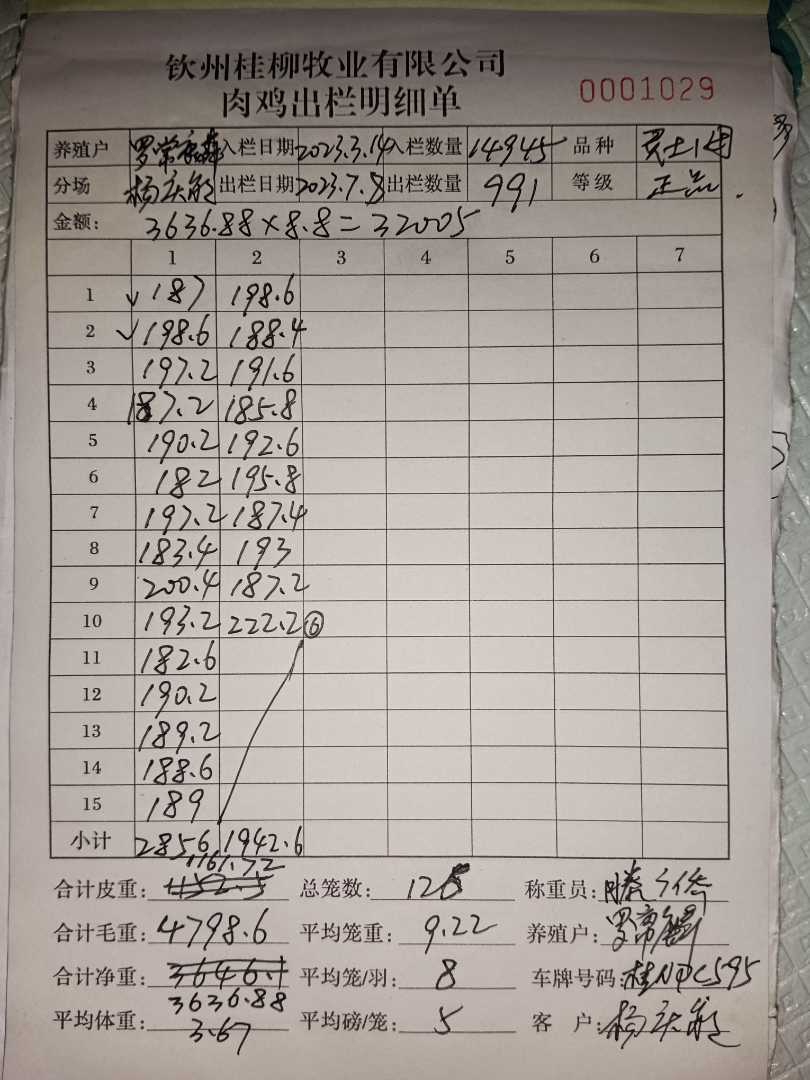 钦州桂柳牧业有限公司
肉鸡出栏明细单 0001029
养殖户 罗常 入栏日期 2023.3.14 入栏数量 14945 品种
分场 杨庆 出栏日期 2023.7.8 出栏数量 991 等级 正品
金额: 3636.88×8.8=32005
1 2 3 4 5 6 7
1 187 198.6
2 198.6 188.4
3 197.2 191.6
4 187.2 185.8
5 190.2 192.6
6 182 195.8
7 197.2 187.4
8 183.4 193
9 200.4 187.2
10 193.2 222.2 ⑥
11 182.6
12 190.2
13 189.2
14 188.6
15 189
小计 2856 1942.6
1161.72
合计皮重: 1152.5 总笼数: 126 称重员: 滕 侨
合计毛重: 4798.6 平均笼重: 9.22 养殖户:
合计净重: 3646.1 平均笼/羽: 8 车牌号码: 桂N C595
3636.88
平均体重: 3.67 平均磅/笼: 5 客 户: 杨庆